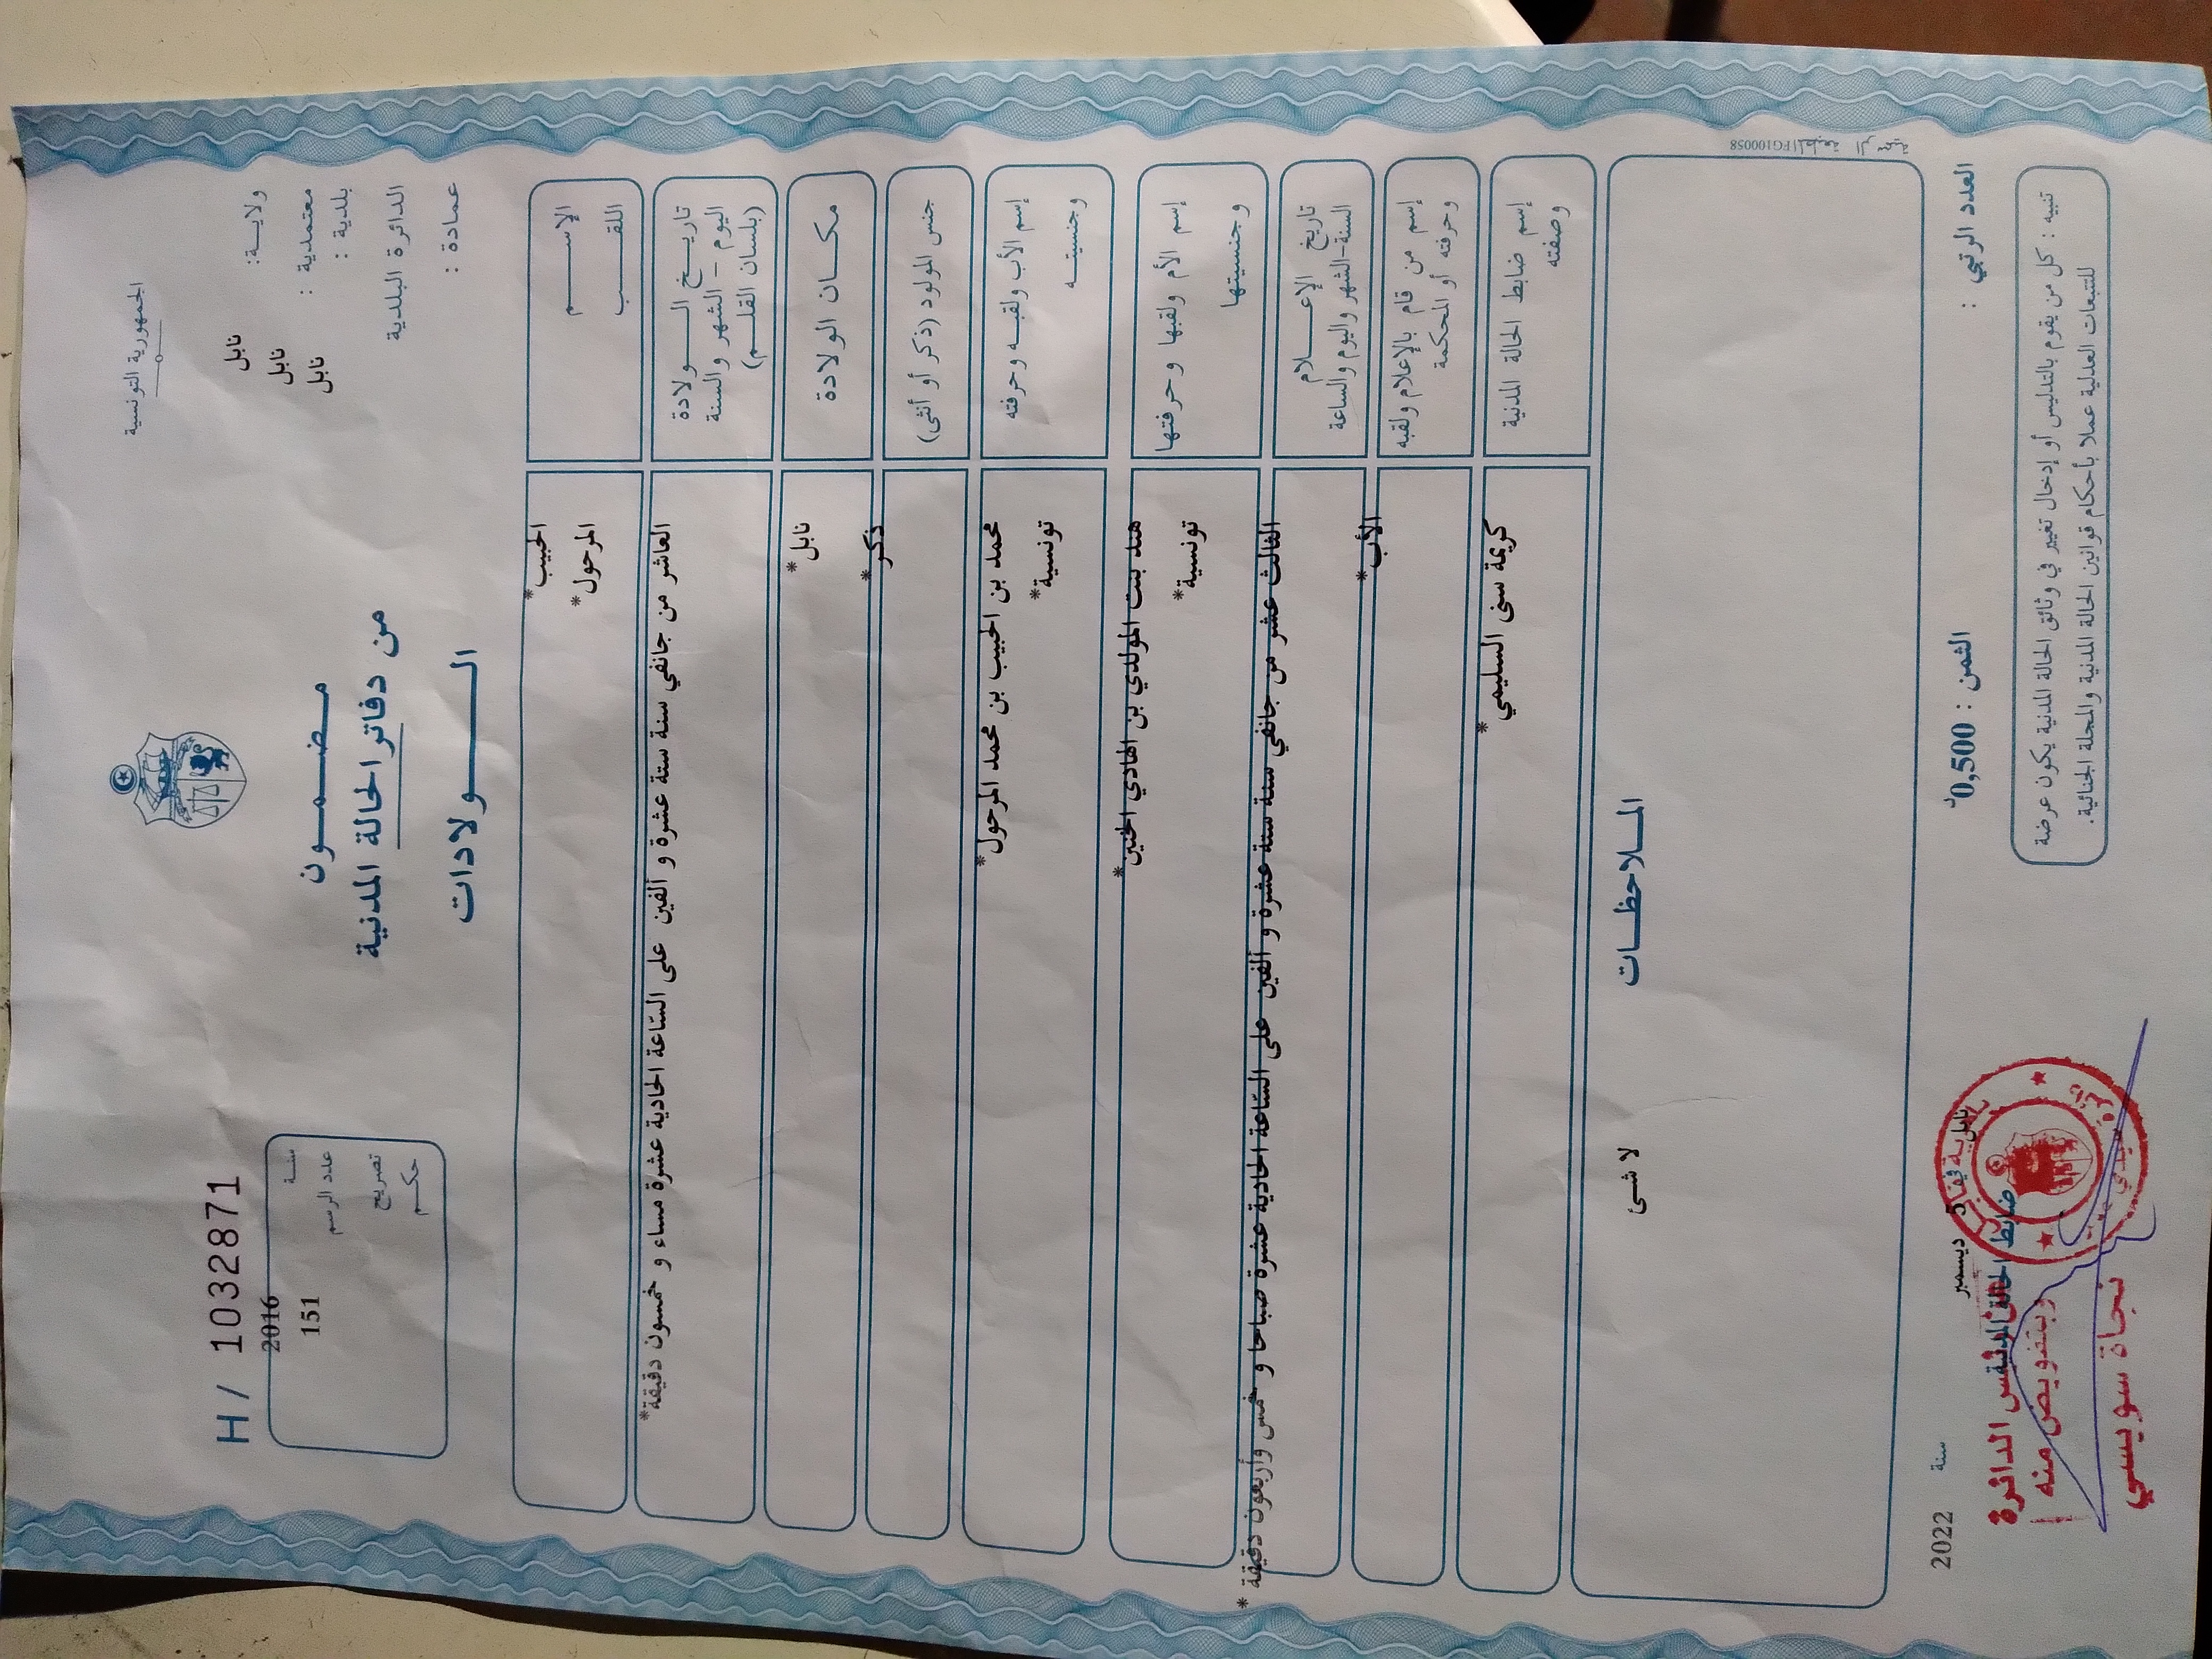 الجمهورية التونسية
ولايـــة: نابل
معتمدية : نابل
بلدية : نابل
الدائرة البلدية
عمادة :
مـــضـــمـــون
من دفاتر الحالة المدنية
الـــــولادات
H / 1032871
سنــة 2016
عدد الرسم 151
تصريح
حكــم
الإســـــم الحبيب*
اللقـــــب المرحول*
تاريـــخ الـــــولادة
اليوم - الشهر والسنة
(بلسان القلـــم)
العاشر من جانفي سنة ستة عشرة و ألفين على السّاعة الحادية عشرة مساء و خمسون دقيقة*
مكـــان الولادة نابل*
جنس المولود (ذكر أو أنثى) ذكر*
إسم الأب ولقبـــه وحرفته
محمد بن الحبيب بن محمد المرحول*
وجنسيتـــه تونسية*
إسم الأم ولقبها وحرفتها
هند بنت المولدي بن الهادي الحنين*
وجنسيتها تونسية*
تاريخ الإعـــلام
السنة-الشهر واليوم والساعة
الثالث عشر من جانفي سنة ستة عشرة و ألفين على السّاعة الحادية عشرة صباحا و خمس وأربعون دقيقة *
إسم من قام بالإعلام ولقبه
وحرفته أو المحكمة
الأب*
إسم ضابط الحالة المدنية
وصفته
كريمة سنى السليمي*
المـــلاحظـــات
لا شئ
المطبعة الرسمية FG100058
العدد الرتبي :
الثمن : 0,500د
نابل 5 ديسمبر سنة 2022
ضابط الحالة المدنية
الدائرة
وبتفويض منه
نجاة سويسي
تنبيه : كل من يقوم بالتدليس أو إدخال تغيير في وثائق الحالة المدنية يكون عرضة
للتتبعات العدلية عملا بأحكام قوانين الحالة المدنية والمجلة الجنائية.